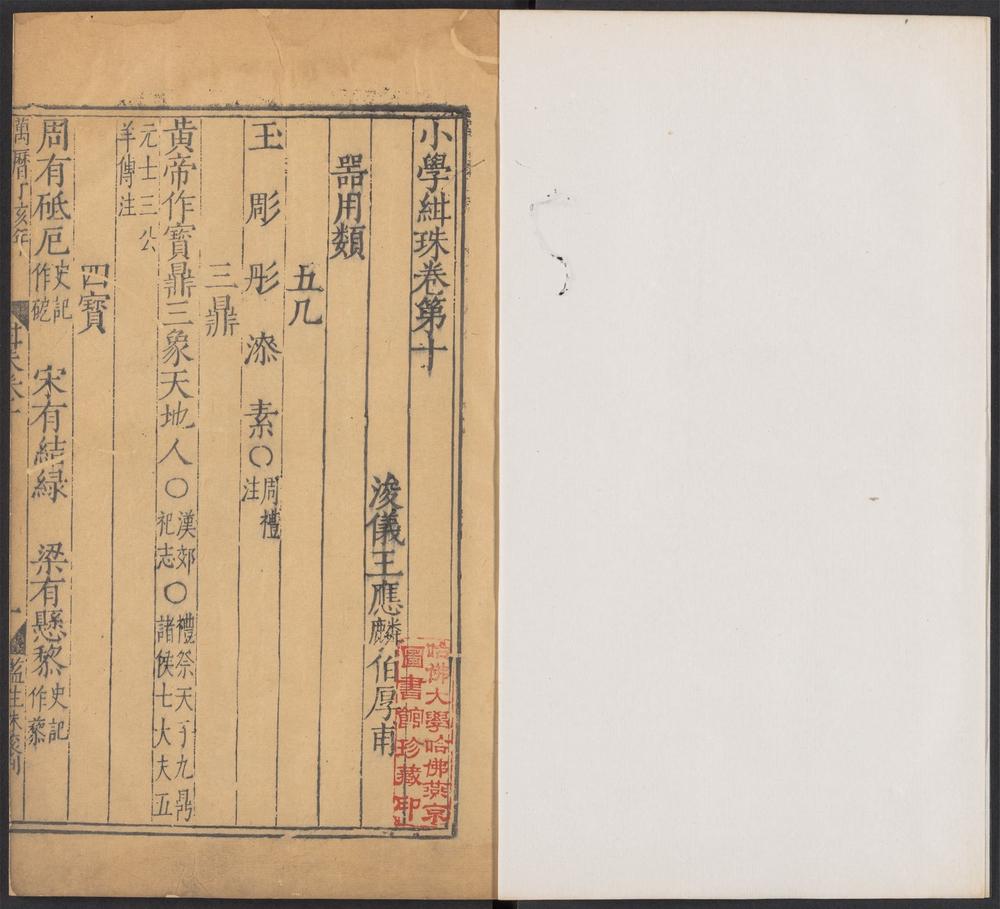 小學紺珠卷第十
浚儀王應麟伯厚甫
器用類
五几
玉 彫 彤 漆 素〇周禮注
三鼎
黃帝作寶鼎三象天地人〇漢郊祀志〇禮祭天子九鼎諸侯七大夫五
元士三公羊傳注
四寶
周有砥卮史記作砨 宋有結緑 梁有懸黎史記作藜
萬曆丁亥年
哈佛大學哈佛燕京
圖書館珍藏印